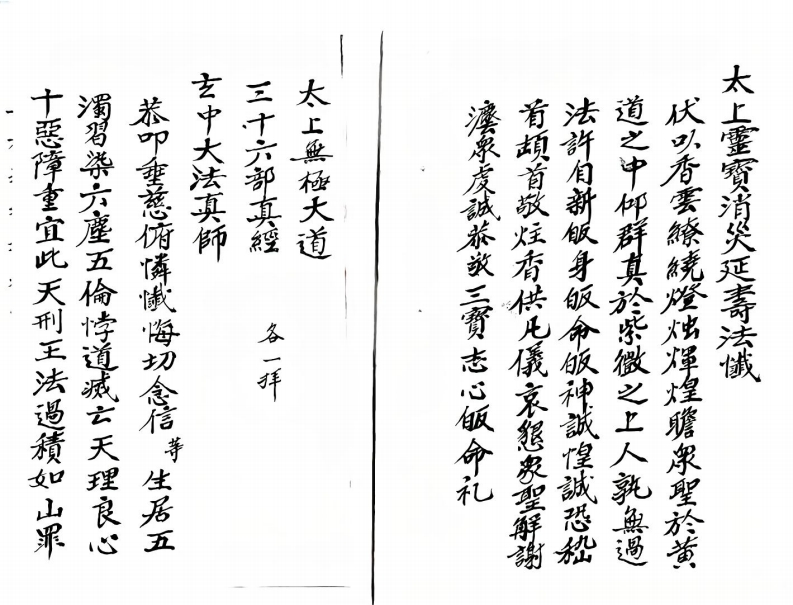 太上靈寶消災延壽法懺
伏以香雲繚繞燈烛煇煌瞻衆聖於黄
道之中仰群真於紫微之上人孰無過
法許自新皈身皈命皈神誠惶誠恐稽
首頓首敬炷香供凡儀哀懇衆聖解謝
壇衆虔誠恭敬三寶志心皈命礼
太上無極大道
三十六部真經
玄中大法真師
各一拜
恭叩垂慈俯憐懴悔切念信等生居五
濁習染六塵五倫悖道滅亡天理良心
十惡障重宜此天刑王法過積如山罪